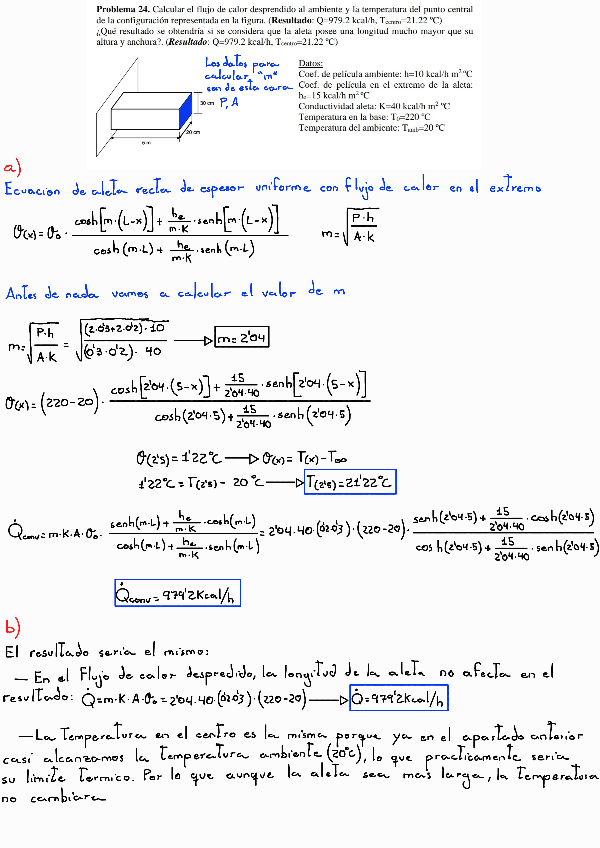 Problema 24. Calcular el flujo de calor desprendido al ambiente y la temperatura del punto central
de la configuración representada en la figura. (Resultado: Q=979.2 kcal/h, Tcentro=21.22 ºC)
¿Qué resultado se obtendría si se considera que la aleta posee una longitud mucho mayor que su
altura y anchura?. (Resultado: Q=979.2 kcal/h, Tcentro=21.22 ºC)
Los datos para
calcular "m"
son de esta cara
P, A
30 cm
20 cm
5 m
Datos:
Coef. de película ambiente: h=10 kcal/h m² ºC
Coef. de película en el extremo de la aleta:
he=15 kcal/h m² ºC
Conductividad aleta: K=40 kcal/h m ºC
Temperatura en la base: T0=220 ºC
Temperatura del ambiente: Tamb=20 ºC
a)
Ecuacion de aleta recta de espesor uniforme con flujo de calor en el extremo
θ(x)=θo · (cosh[m·(L-x)] + he/(m·K) · senh[m·(L-x)]) / (cosh(m·L) + he/(m·K) · senh(m·L))    m=√(P·h/(A·K))
Antes de nada vamos a calcular el valor de m
m=√(P·h/(A·K)) = √((2·0'3+2·0'2)·10/((0'3·0'2)·40)) → m=2'04
θ(x)=(220-20) · (cosh[2'04·(5-x)] + 15/(2'04·40) · senh[2'04·(5-x)]) / (cosh(2'04·5) + 15/(2'04·40) · senh(2'04·5))
θ(2'5)=1'22ºC → θ(x)=T(x)-T∞
1'22ºC=T(2'5)- 20ºC → T(2'5)=21'22ºC
Q̇conv=m·K·A·θo · (senh(m·L) + he/(m·K) · cosh(m·L)) / (cosh(m·L) + he/(m·K) · senh(m·L)) = 2'04·40·(0'2·0'3)·(220-20) · (senh(2'04·5) + 15/(2'04·40) · cosh(2'04·5)) / (cosh(2'04·5) + 15/(2'04·40) · senh(2'04·5))
Q̇conv=979'2Kcal/h
b)
El resultado seria el mismo:
— En el Flujo de calor despredido, la longitud de la aleta no afecta en el
resultado: Q̇=m·K·A·θo=2'04·40·(0'2·0'3)·(220-20) → Q̇=979'2Kcal/h
—La Temperatura en el centro es la misma porque ya en el apartado anterior
casi alcanzamos la temperatura ambiente (20ºC), lo que practicamente seria
su limite termico. Por lo que aunque la aleta sea mas larga, la temperatura
no cambiara